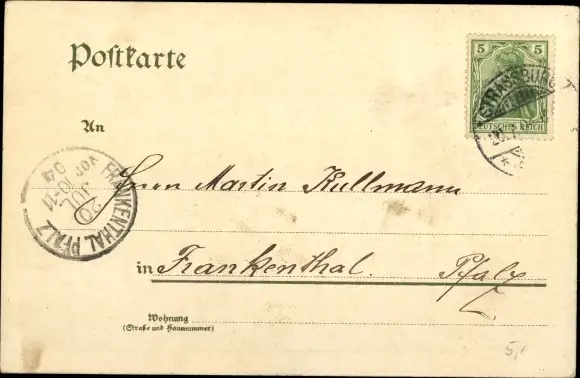 Postkarte
5 5
DEUTSCHES REICH
STRASSBURG
An
FRANKENTHAL PFALZ
20
JUL
10-11
Vor
04
Herrn Martin Kullmann
in Frankenthal. Pfalz
Wohnung
(Straße und Hausnummer)
5,-